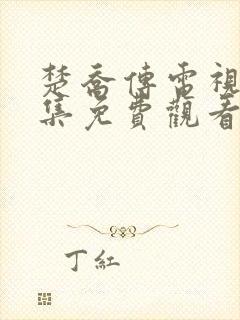 楚喬傳電視
集免費觀看
丁紅